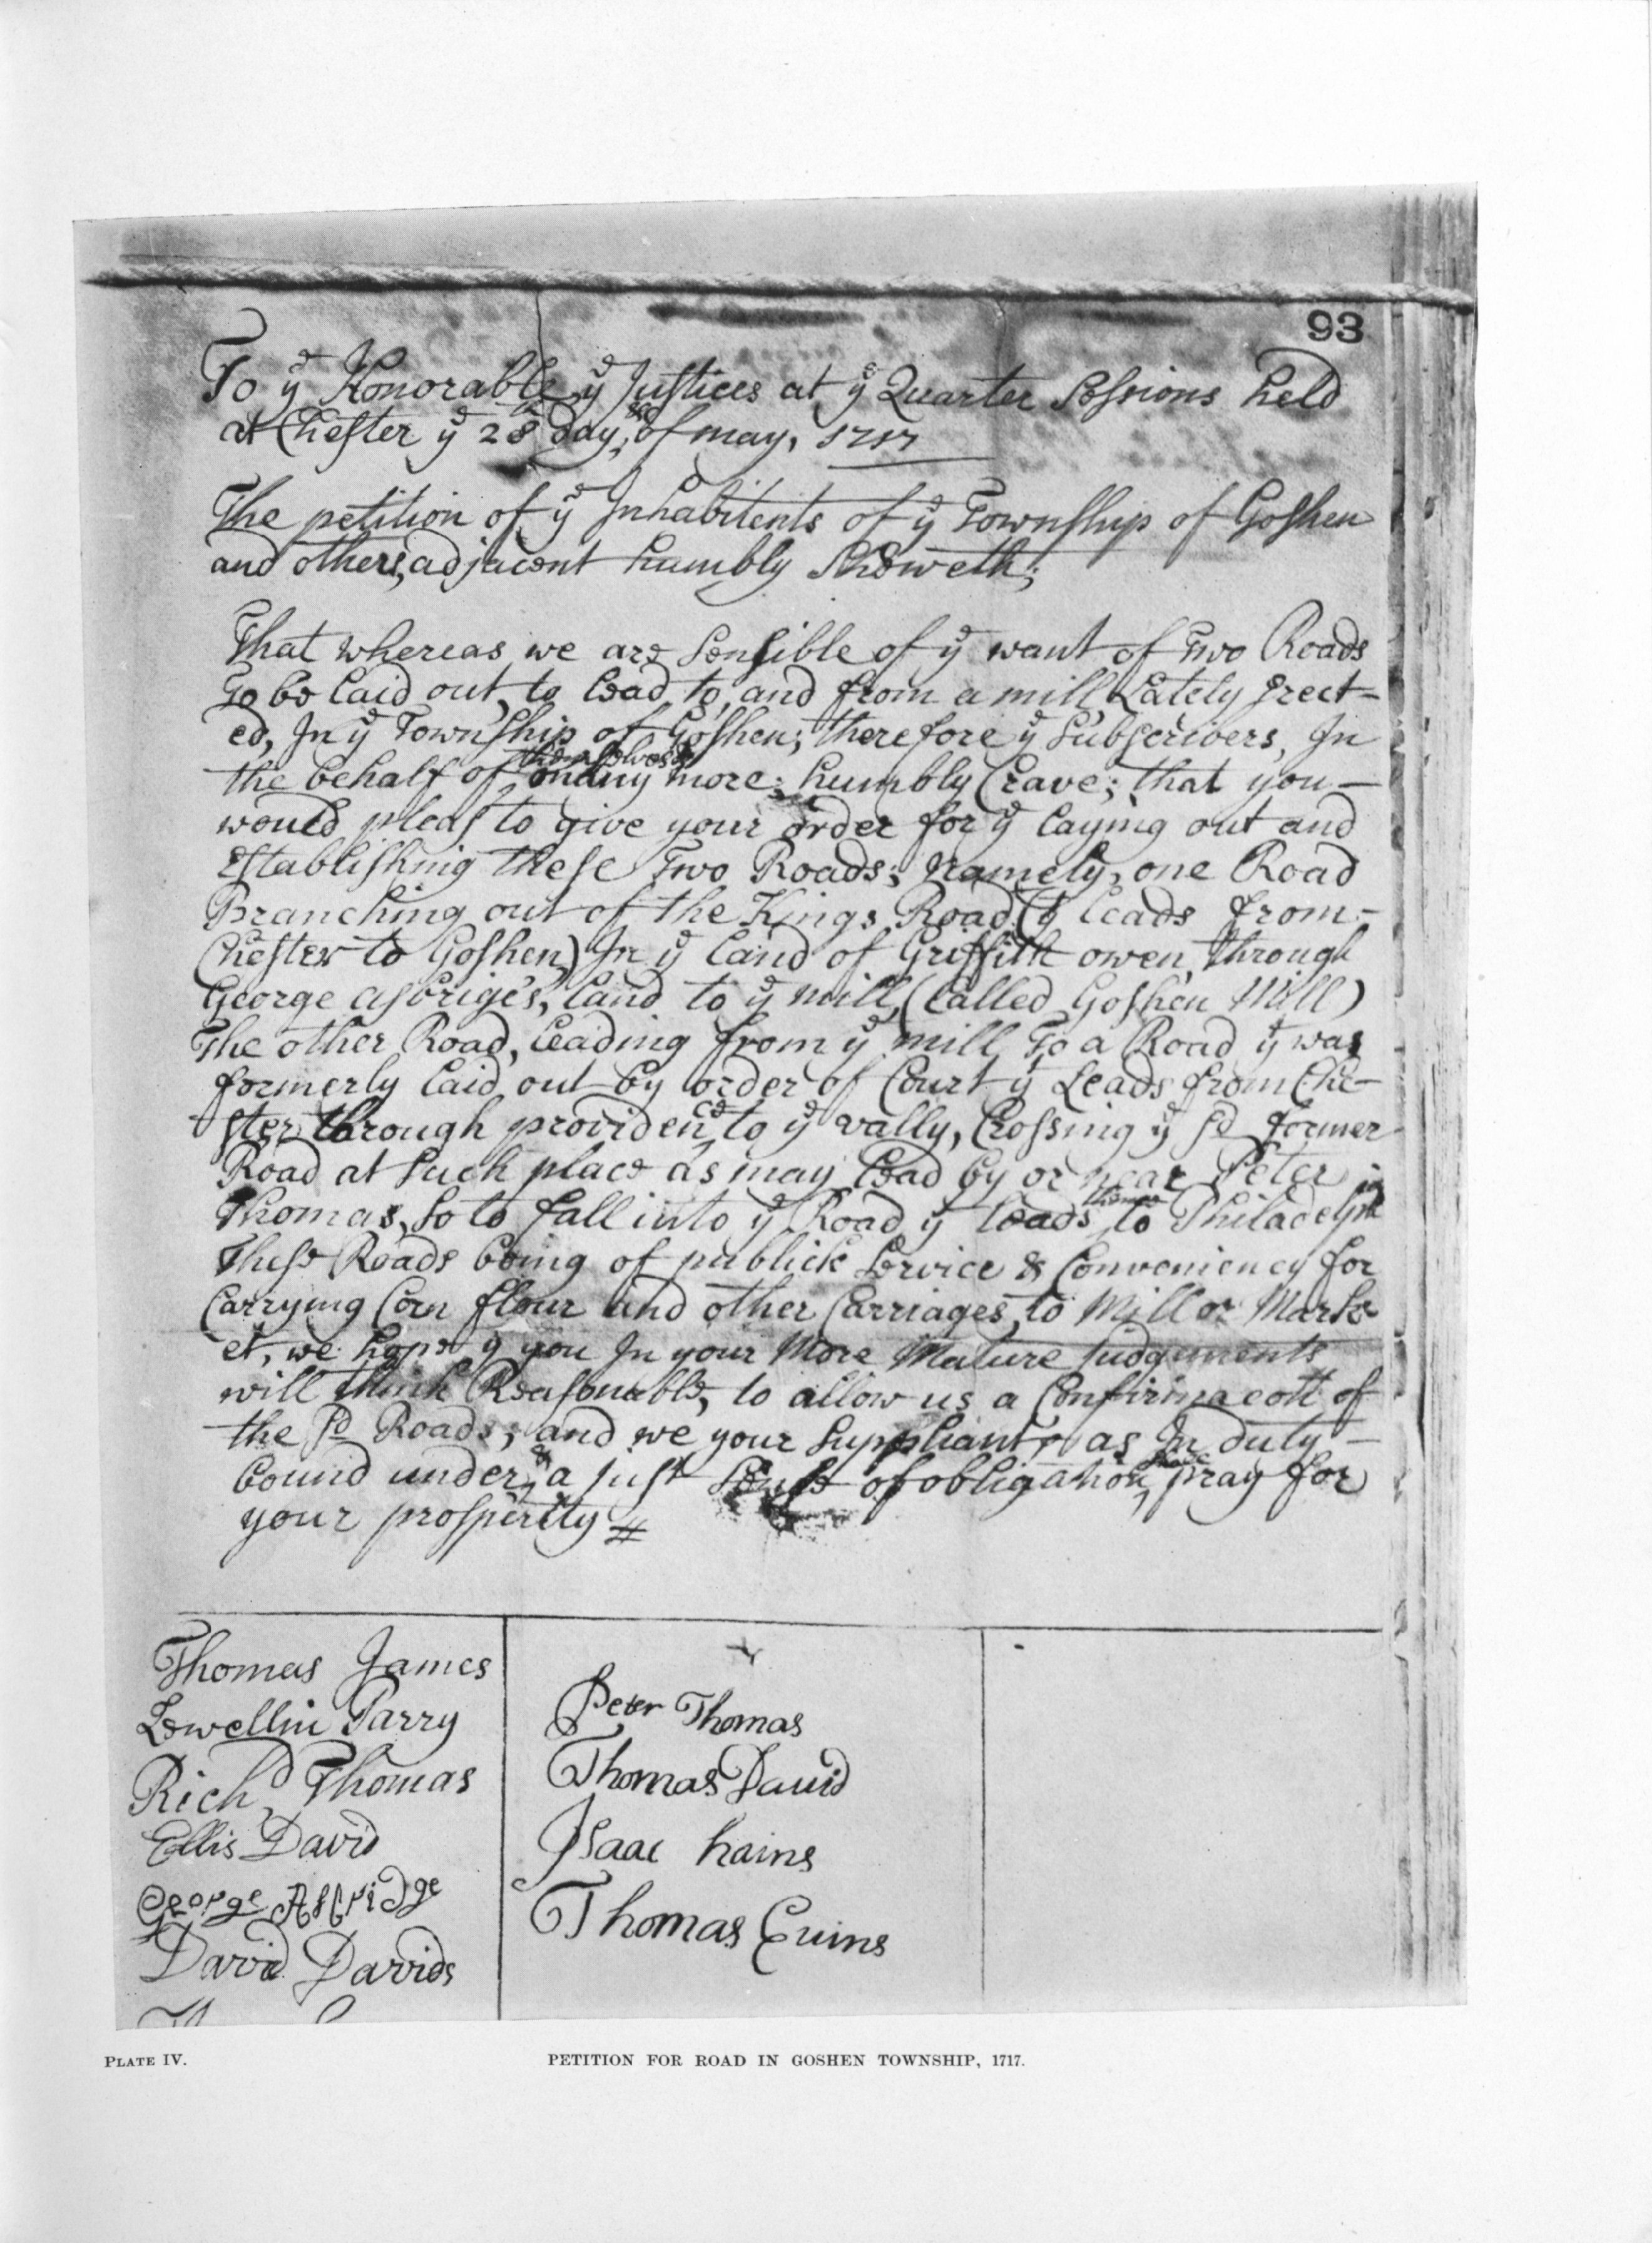 93
To yᵉ Honorable yᵉ Justices at yᵉ Quarter Sessions held
at Chester yᵉ 28th day, of may, 1717
The petition of yᵉ Inhabitents of yᵉ Township of Goshen
and others, adjacent humbly Sheweth;
That whereas we are Sensible of yᵉ want of Two Roads
To be Laid out, to Lead to, and from a mill Lately Erect-
ed, In yᵉ Township of Goshen; therefore yᵉ Subscribers, In
the behalf of themselves & many more; humbly Crave; that you -
would pleas to give your order for yᵉ laying out and
Establishing these Two Roads; Namely, one Road
Branching out of the Kings Road (yᵗ Leads from -
Chester to Goshen) In yᵉ Land of Griffith owen, through
George Land to yᵉ mill, (Called Goshen Mill)
The other Road, Leading from yᵉ mill To a Road yᵗ was
formerly Laid out by order of Court yᵗ Leads from Che-
ster through providence to yᵉ vally, Crossing yᵉ sd former
Road at Such place as may Lead by or near Peter
Thomas, So to fall into yᵉ Road yᵗ Leads thence to Philadelph
These Roads being of publick Service & Conveniency for
Carrying Corn flour and other Carriages, to Mill or Mark-
et, we hope yᵗ you In your More Mature Judgements
will think Reasonable, to allow us a of
the sd Roads; and we your Suppliants as In duty -
bound under a just Sense of obligation, pray for
your prosperity
Thomas James
Lewellin Parry
Richd Thomas
Ellis David
George Asbridge
David Davids
Peter Thomas
Thomas David
Isaac hains
Thomas Euins
PLATE IV.
PETITION FOR ROAD IN GOSHEN TOWNSHIP, 1717.